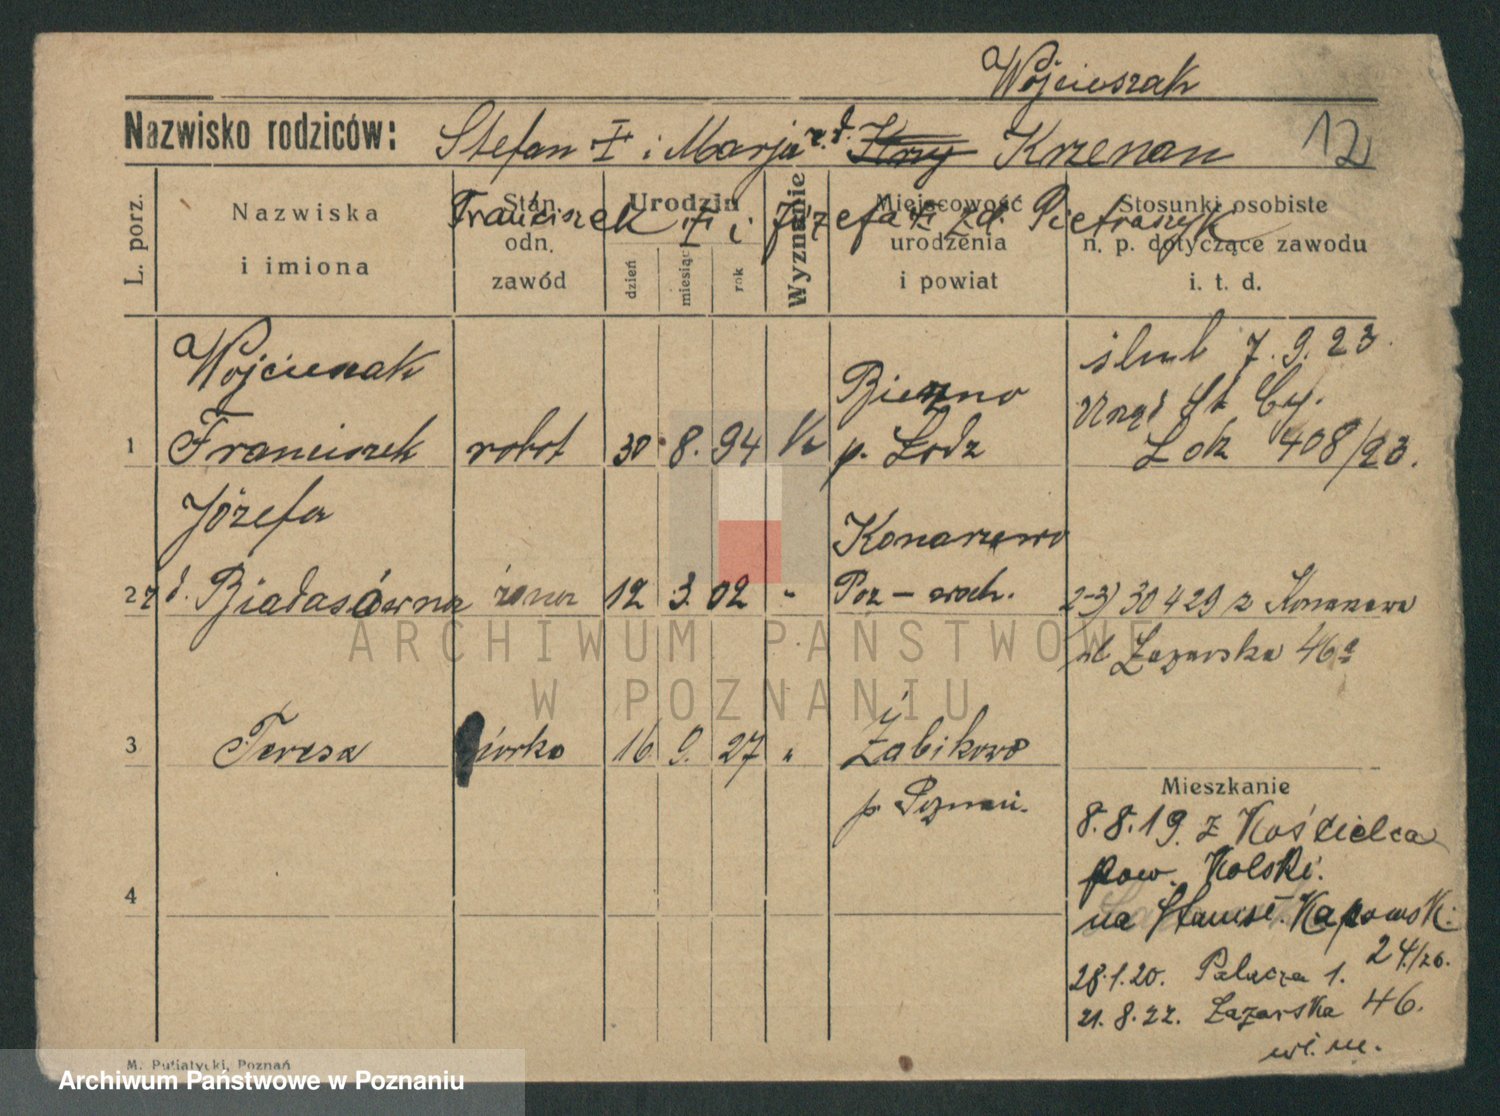 Wojcieszak
Nazwisko rodziców: Stefan i Marja z. d. Krzy Krzenan 12
Franciszek i Józefa zd. Pietraszyk
L. porz.
Nazwiska i imiona
Stan odn. zawód
Urodzin
dzień
miesiąc
rok
Wyznanie
Miejscowość urodzenia i powiat
Stosunki osobiste n. p. dotyczące zawodu i. t. d.
Wojcieszak
1 Franciszek robot 30 8. 94 k Biezno p. Łodz
ślub 7.9.23.
Urząd St Cy.
L ok 408/23.
Józefa
2 z d. Białasówna żona 12 3. 02 " Konarzewo Poz - wsch.
2-3) 30 4 29 z Konarzewa
ul Łazarska 46a
3 Teresa córka 16 9. 27 " Żabikowo
p. Poznań.
4
Mieszkanie
8.8.19. z Kościelca
pow. Kolski.
na Stanisł. Kapowsk.
24./26.
28.1.20. Palacza 1.
21.8.22. Łazarska 46.
wł. m.
M. Putiatycki, Poznań
ARCHIWUM PAŃSTWOWE
W POZNANIU
Archiwum Państwowe w Poznaniu